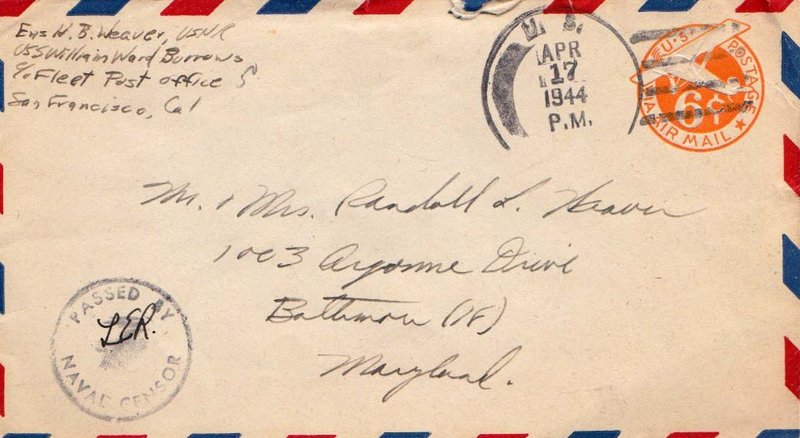 Ens H. B. Weaver, USNR
USS William Ward Burrows
c/o Fleet Post Office
San Francisco, Cal
U. S.
APR
17
1944
P.M.
U.S. POSTAGE
6¢
AIR MAIL
Mr. & Mrs. Randall L. Weaver
1003 Argonne Drive
Baltimore (18)
Maryland.
PASSED BY
LER.
NAVAL CENSOR